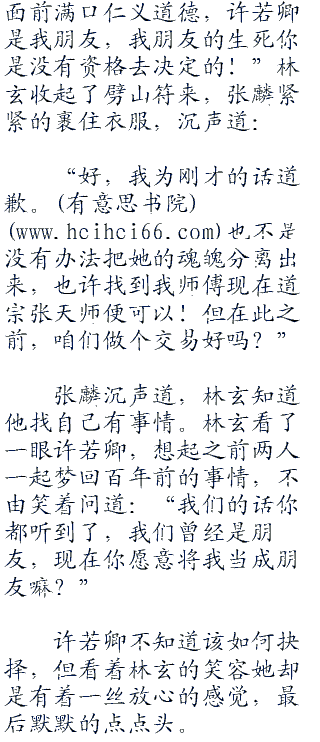 面前满口仁义道德，许若卿
是我朋友，我朋友的生死你
是没有资格去决定的！”林
玄收起了劈山符来，张麟紧
紧的裹住衣服，沉声道：
“好，我为刚才的话道
歉。(有意思书院)
(www.hcihci66.com)也不是
没有办法把她的魂魄分离出
来，也许找到我师傅现在道
宗张天师便可以！但在此之
前，咱们做个交易好吗？”
张麟沉声道，林玄知道
他找自己有事情。林玄看了
一眼许若卿，想起之前两人
一起梦回百年前的事情，不
由笑着问道：“我们的话你
都听到了，我们曾经是朋
友，现在你愿意将我当成朋
友嘛？”
许若卿不知道该如何抉
择，但看着林玄的笑容她却
是有着一丝放心的感觉，最
后默默的点点头。